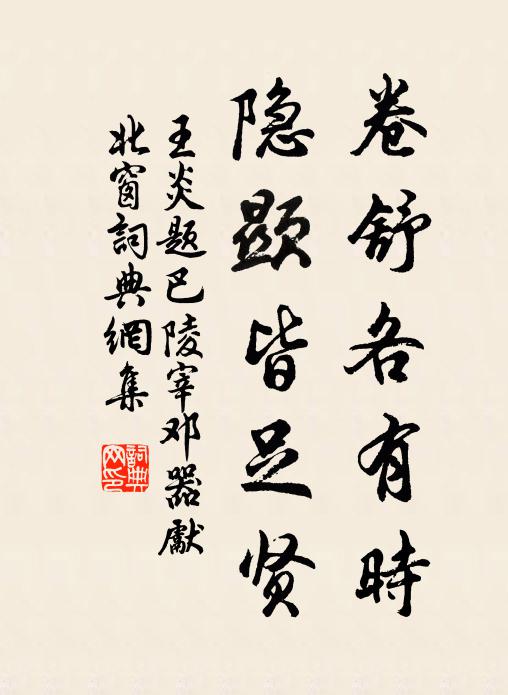 卷舒各有時
隐顯皆足贤
王炎题巴陵宰邓器獻
北窗詞典網集
詞典網印